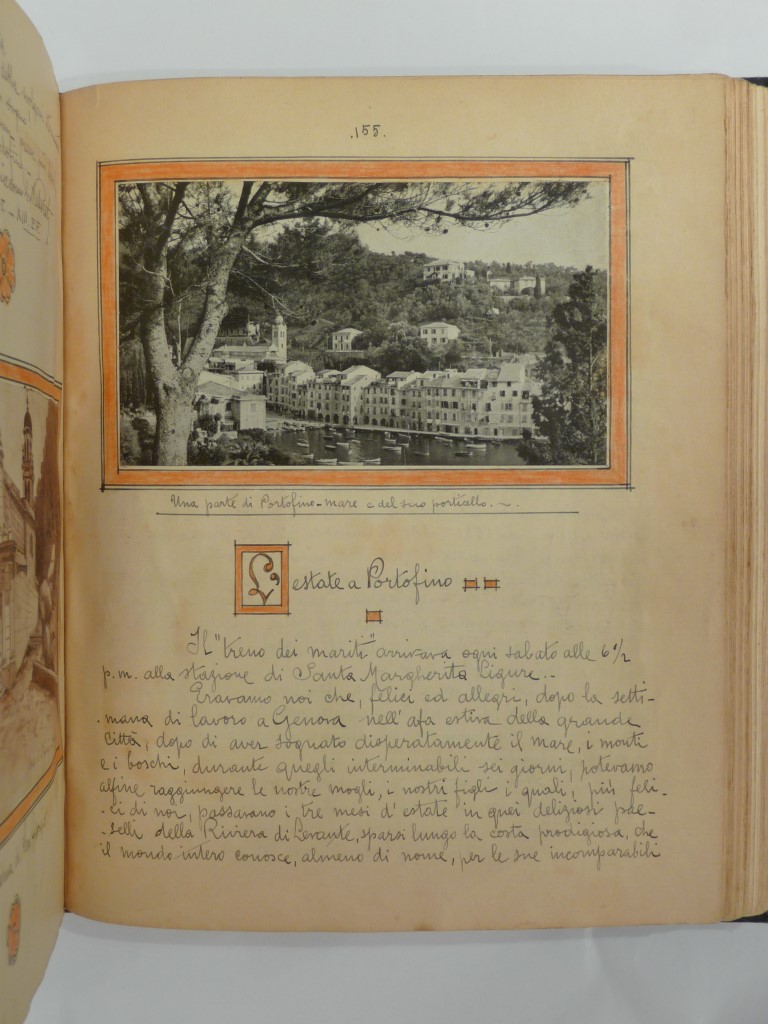 .155.
Una parte di Portofino-mare e del suo porticello. ~.
L'estate a Portofino
Il "treno dei mariti" arrivava ogni sabato alle 6 1/2
p.m. alla stazione di Santa Margherita Ligure..
Eravamo noi che, felici ed allegri, dopo la setti-
-mana di lavoro a Genova nell'afa estiva della grande
città, dopo di aver sognato disperatamente il mare, i monti
e i boschi, durante quegli interminabili sei giorni, potevamo
alfine raggiungere le nostre mogli, i nostri figli i quali, più feli-
-ci di noi, passavano i tre mesi d'estate in quei deliziosi pae-
selli della Riviera di Levante, sparsi lungo la costa prodigiosa, che
il mondo intero conosce, almeno di nome, per le sue incomparabili